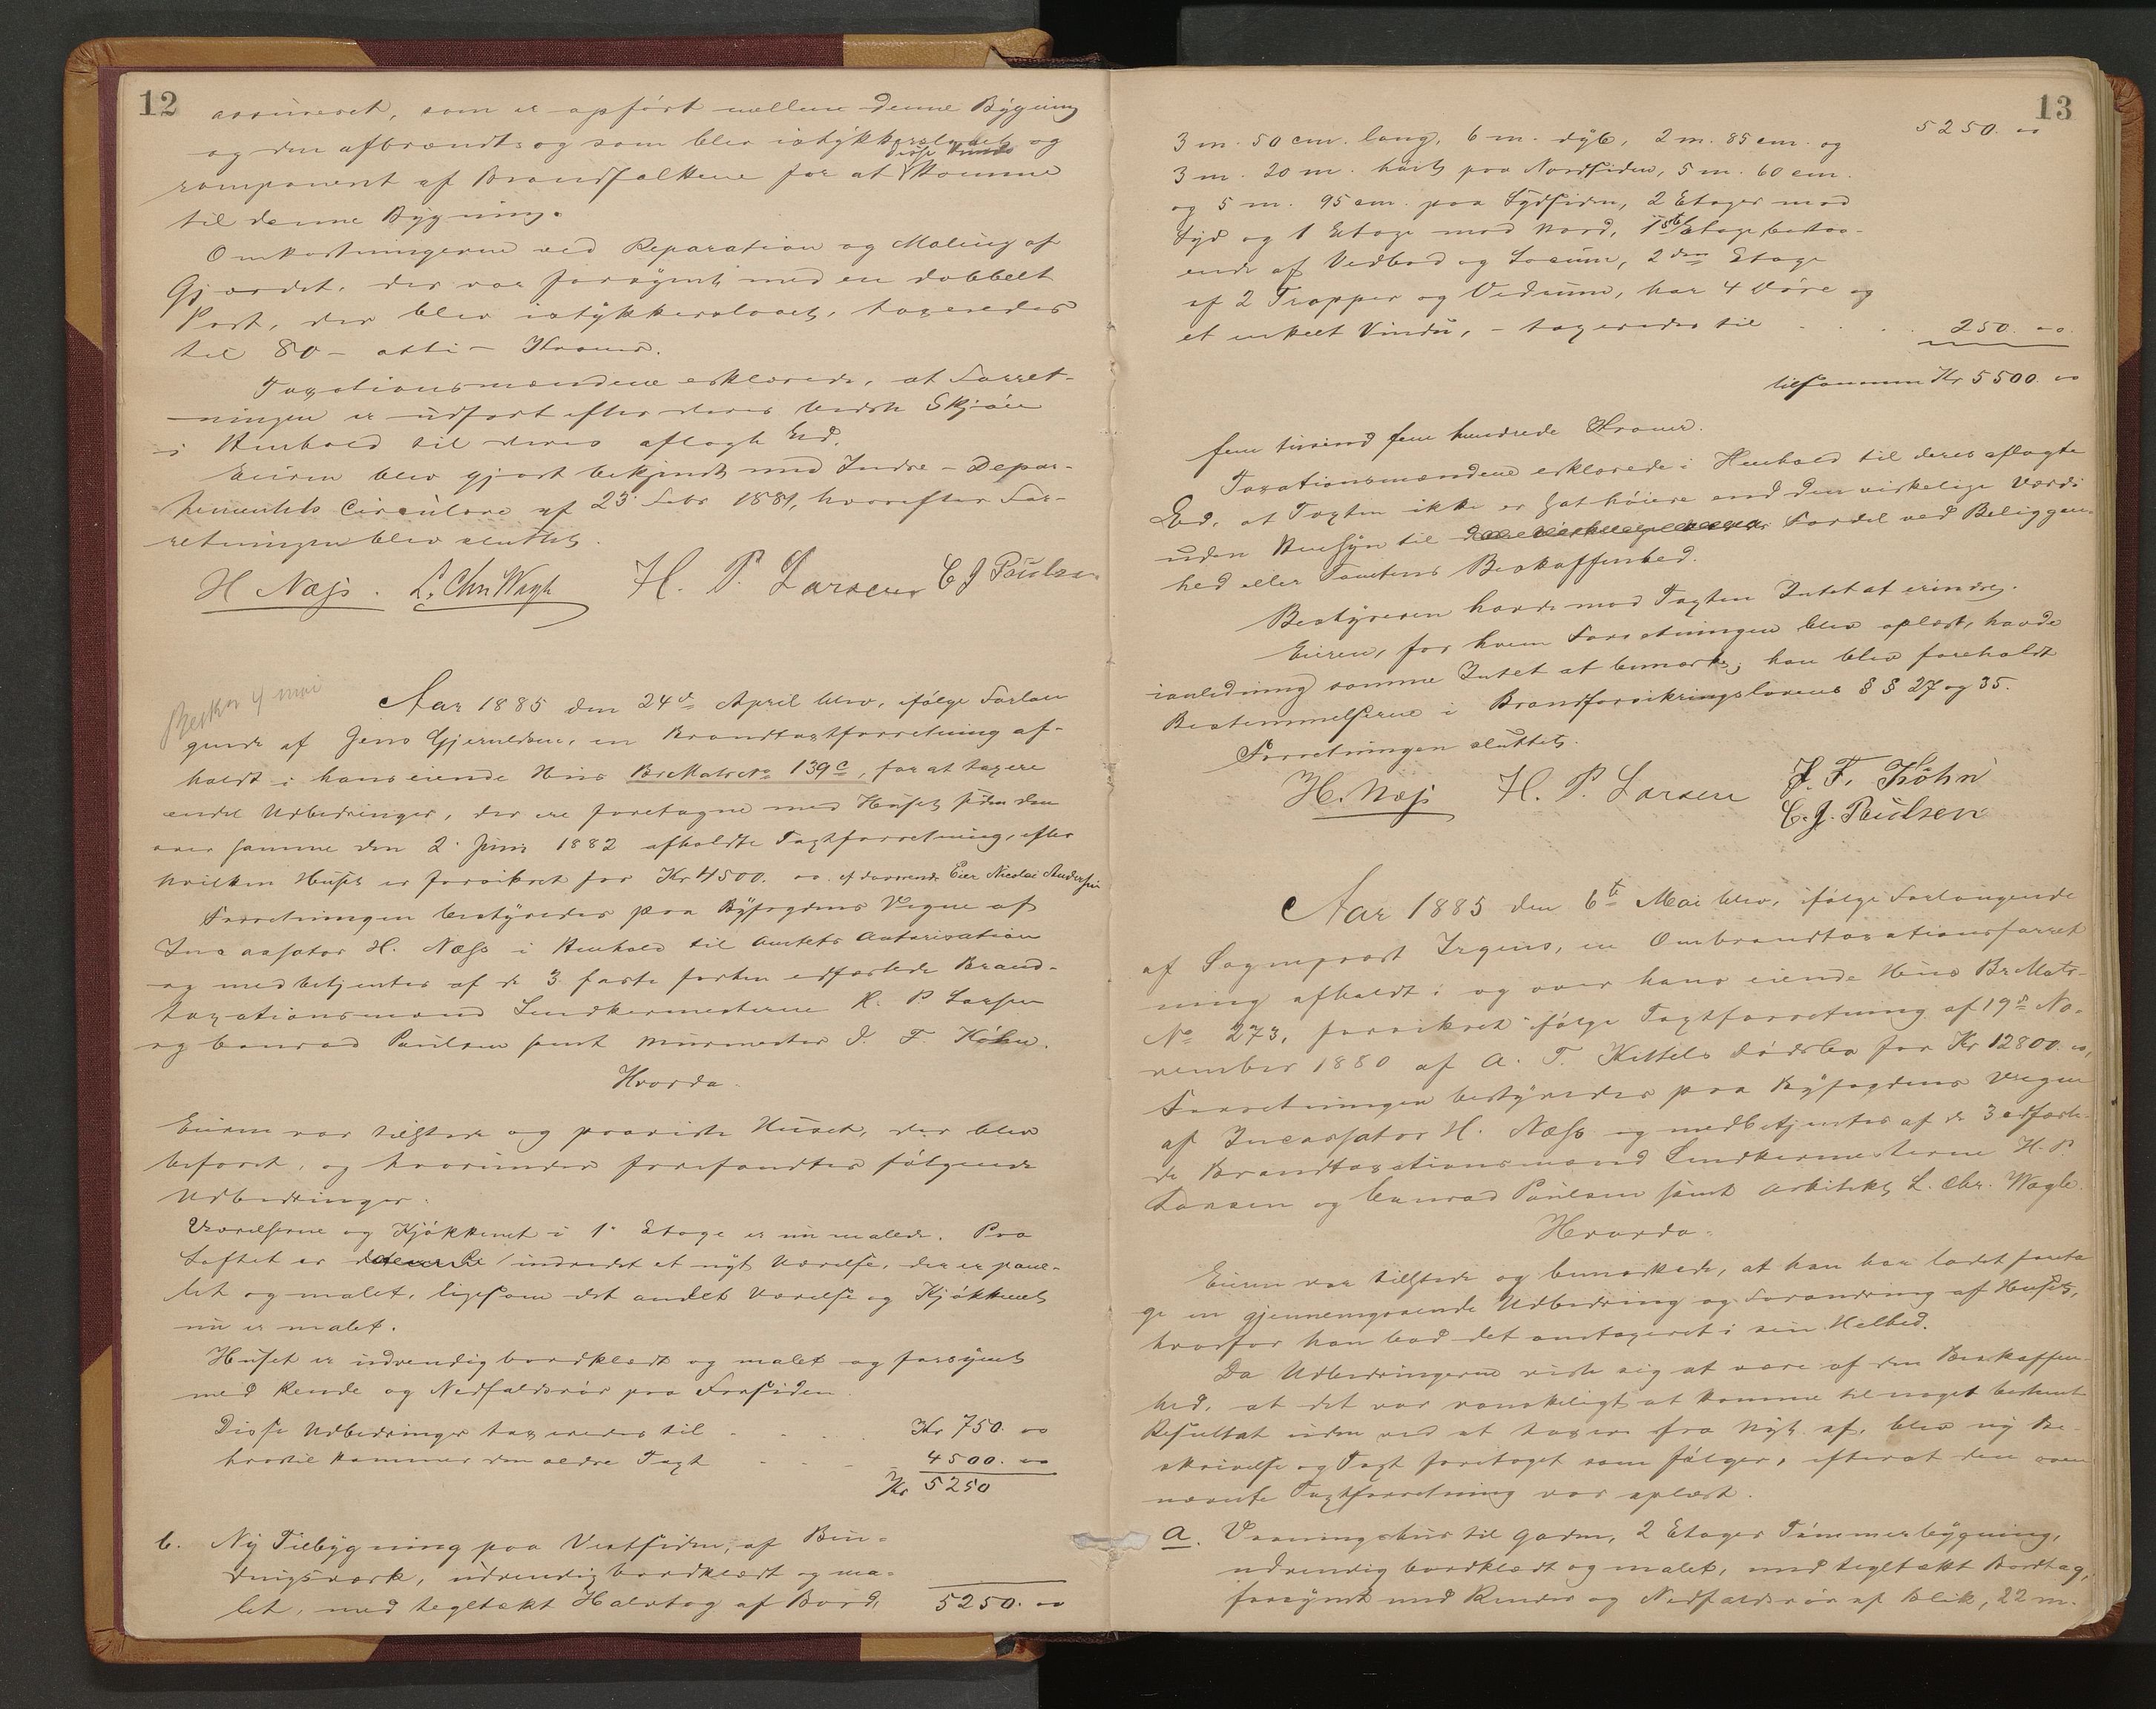 12
assureret, som er opført mellem denne Bygning
og den afbrændte og som blev istykkerslaaet og
ramponeret af Brandfolkene for at komme
til denne Bygning.
Omkostningerne ved Reparation og Maling af
Gjærdet, der var forsynet med en dobbelt
Port, der blev istykkerslaaet, taxeredes
til 80 - otti - Kroner.
Taxationsmændene erklærede, at Forret-
ningen er udført efter deres bedste Skjøn
i Henhold til deres aflagte Ed.
Eieren blev gjort bekjendt med Indre-Depar-
tementets Circulære af 23. Febr 1881, hvorefter For-
retningen blev sluttet.
H Næss. L. Chr Wagle H. P. Larsen C J Paulsen
Beskr 4 mai
Aar 1885 den 24de April blev, ifølge Forlan
gende af Jens Gjeruldsen, en Brandtaxtforretning af-
holdt i hans eiende Hus Br Matr No 139c, for at taxere
endel Udbedringer, der ere foretagne med Huset siden den
over samme den 2. Juni 1882 afholdte Taxtforretning, efter
hvilken Huset er forsikret for Kr 4500. 00. af daværende Eier Nicolai Andersen
Forretningen bestyredes paa Byfogdens Vegne af
Incassator H. Næss i Henhold til Amtets Autorisation
og medbetjentes af de 3 faste forhen edfæstede Brand-
taxationsmænd Snedkermesterne H. P Larsen
og Conrad Paulsen samt Murmester J. F. Köhn.
Hvorda
Eieren var tilstede og paaviste Huset, der blev
befaret, og hvorunder forefandtes følgende
Udbedringer:
Værelserne og Kjøkkenet i 1. Etage er nu malede. Paa
Loftet er indredet et nyt Værelse, der er pane-
let og malet, ligesom det andet Værelse og Kjøkkenet
nu er malet.
Huset er udvendig bordklædt og malet og forsynet
med Rende og Nedfaldsrør paa Forsiden.
Disse Udbedringer taxeredes til . . . . Kr 750. 00
hvortil kommer den ældre Taxt . . . 4500. 00
Kr 5250
b. Ny Tilbygning paa Vestsiden, af Bin-
dingsværk, udvendig bordklædt og ma-
let, med tegltækt Halvtag af Bord, 5250. 00
13
5250. 00
3 m. 50 cm. lang, 6 m. dyb, 2 m. 85 cm. og
3 m. 20 m. høit paa Nordsiden, 5 m. 60 cm.
og 5 m. 95 cm. paa Sydsiden, 2 Etager mod
Syd og 1 Etage mod Nord, 1ste Etage bestaa-
ende af Vedbod og Locum, 2den Etage
af 2 Trapper og Vedrum, har 4 Døre og
et enkelt Vindu, - taxeredes til . . . . 250. 00.
tilsammen Kr 5500. 00
fem tusind fem hundrede Kroner.
Taxationsmændene erklærede i Henhold til deres aflagte
Ed, at Taxten ikke er sat høiere end den virkelige Værdi
uden Hensyn til Fordel ved Beliggen-
hed eller Tomtens Beskaffenhed.
Bestyreren havde mod Taxten Intet at erindre.
Eieren, for hvem Forretningen blev oplæst, havde
ianledning samme Intet at bemærke; han blev foreholdt
Bestemmelserne i Brandforsikringslovens § § 27 og 35.
Forretningen sluttet.
H. Næss H. P. Larsen J. F. Köhn
C. J. Paulsen
Aar 1885 den 6te Mai blev, ifølge Forlangende
af Sogneprest Irgens, en Ombrandtaxationsforret
ning afholdt i og over hans eiende Hus Br Matr-
No 273, forsikret ifølge Taxtforretning af 19de No-
vember 1880 af A. T. Kittels Dødsbo for Kr 12800. 00,
Forretningen bestyredes paa Byfogdens Vegne
af Incassator H. Næss og medbetjentes af de 3 edfæste-
de Brandtaxationsmænd Snedkermesterne H. P.
Larsen og Conrad Paulsen samt Arkitekt L. Chr. Wagle.
Hvorda.
Eieren var tilstede og bemærkede, at han har ladet foreta
ge en gjennemgaaende Udbedring og Forandring af Huset,
hvorfor han bad det omtaxeret i sin Helhed.
Da Udbedringerne viste sig at være af den Beskaffen-
hed, at det var vanskeligt at komme til noget bestemt
Resultat uden ved at taxere fra Nyt af, blev ny Be-
skrivelse og Taxt foretaget som følger, efterat den oven
nævnte Taxtforretning var oplæst.
a. Vaaningshus til Gaden, 2 Etages Tømmerbygning,
udvendig bordklædt og malet, med tegltækt Bordtag,
forsynet med Render og Nedfaldsrør af Blik, 22 m.